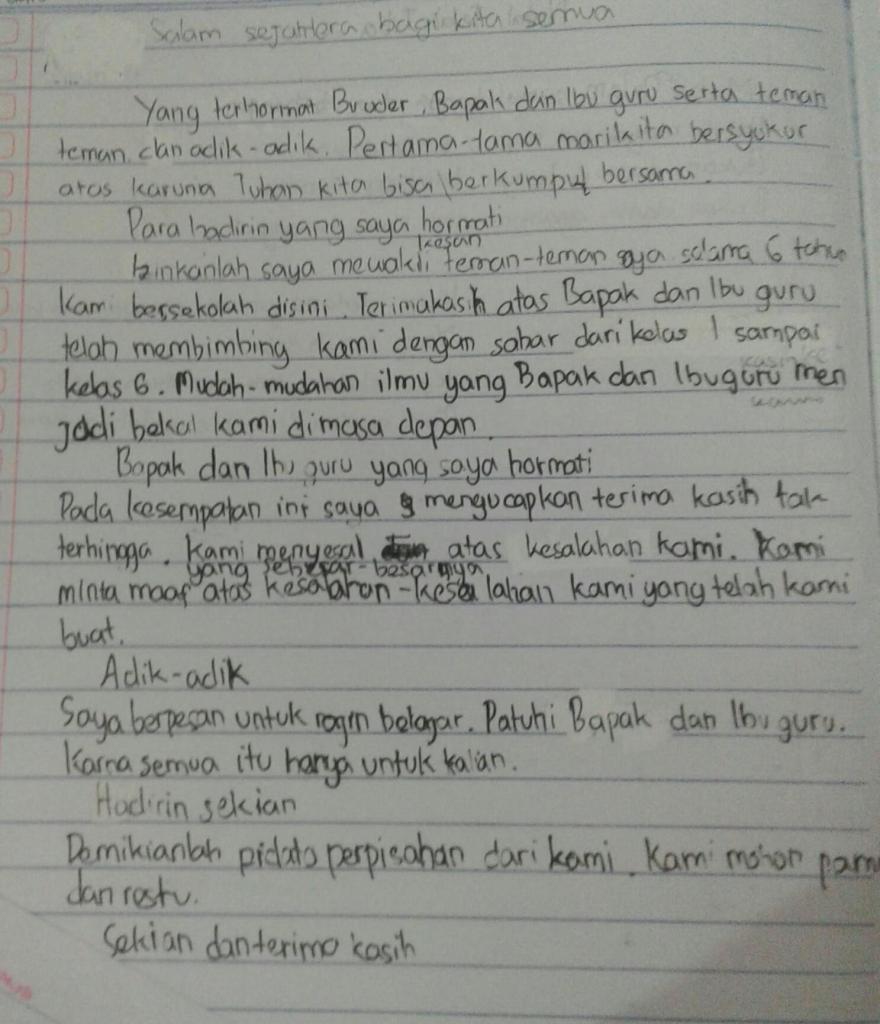 Salam sejahtera bagi kita semua
Yang terhormat Bruder, Bapak dan Ibu guru serta teman
teman dan adik-adik. Pertama-tama mari kita bersyukur
atas karuna Tuhan kita bisa berkumpul bersama.
Para hadirin yang saya hormati
kesan
Izinkanlah saya mewakili teman-teman saya selama 6 tahun
Kami bersekolah disini. Terimakasih atas Bapak dan Ibu guru
telah membimbing kami dengan sabar dari kelas 1 sampai
kelas 6. Mudah-mudahan ilmu yang Bapak dan Ibu guru men
jadi bekal kami dimasa depan.
Bapak dan Ibu guru yang saya hormati
Pada kesempatan ini saya mengucapkan terima kasih tak
terhingga. Kami menyesal atas kesalahan kami. Kami
yang sebesar-besarnya
minta maaf atas kesalahan-kesalahan kami yang telah kami
buat.
Adik-adik
Saya berpesan untuk rajin belajar. Patuhi Bapak dan Ibu guru.
Karna semua itu hanya untuk kalian.
Hadirin sekian
Demikianlah pidato perpisahan dari kami. Kami mohon pam
dan restu.
Sekian dan terima kasih